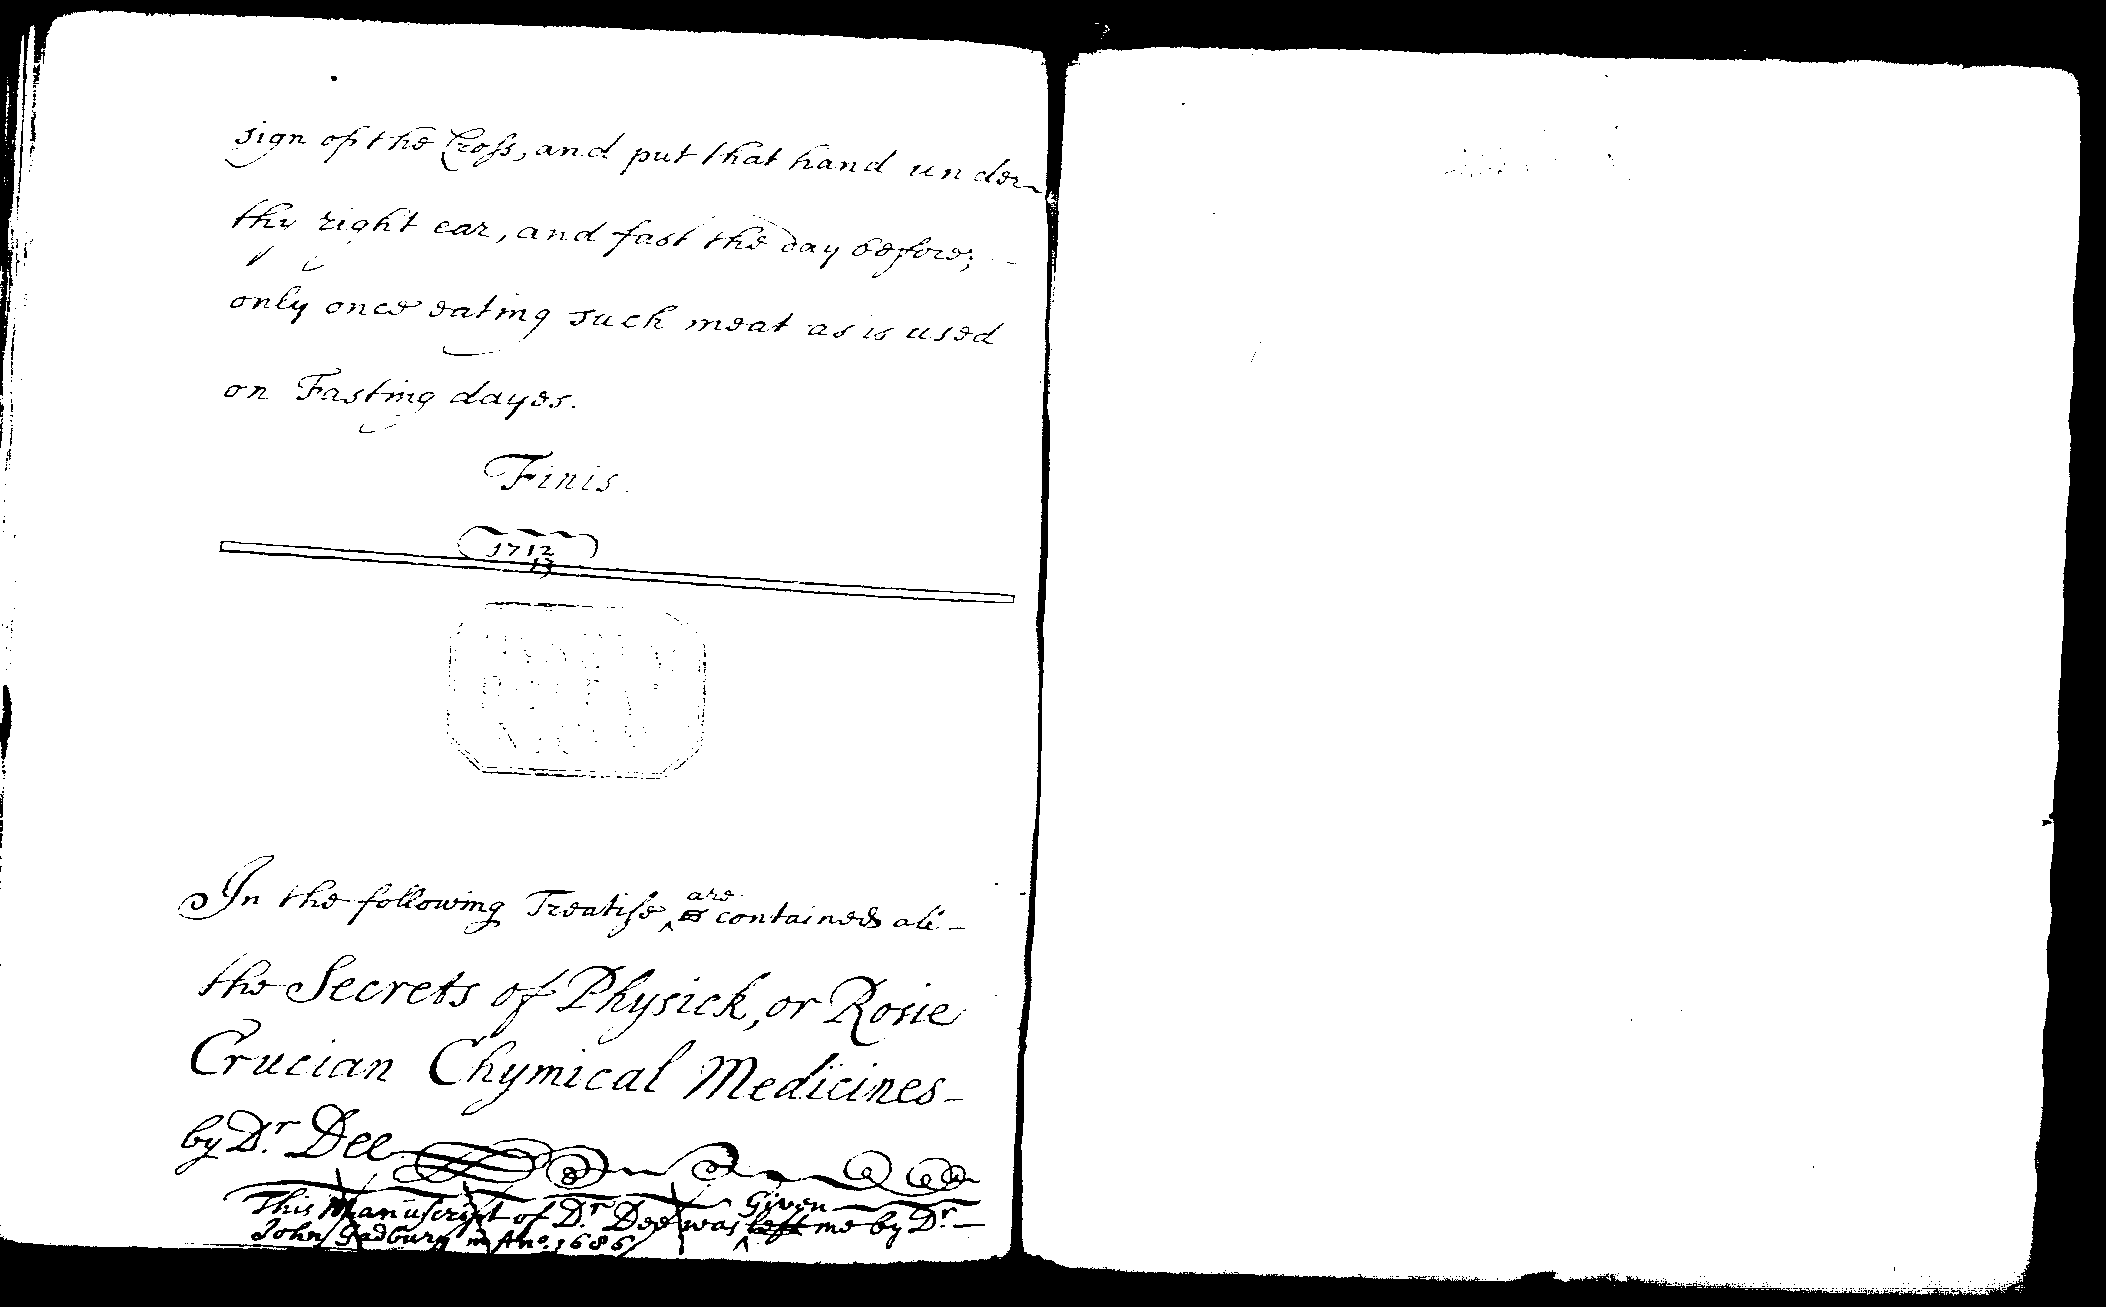 sign of the Cross, and put that hand under
thy right ear, and fast the day before;
only once eating such meat as is used
on Fasting dayes.
Finis.
1712
13
In the following Treatise, are contained all
the Secrets of Physick, or Rosie
Crucian Chymical Medicines
by Dr. Dee
This Manuscript of Dr. Dee was Given left me by Dr.
John Gadbury in Ano. 1686